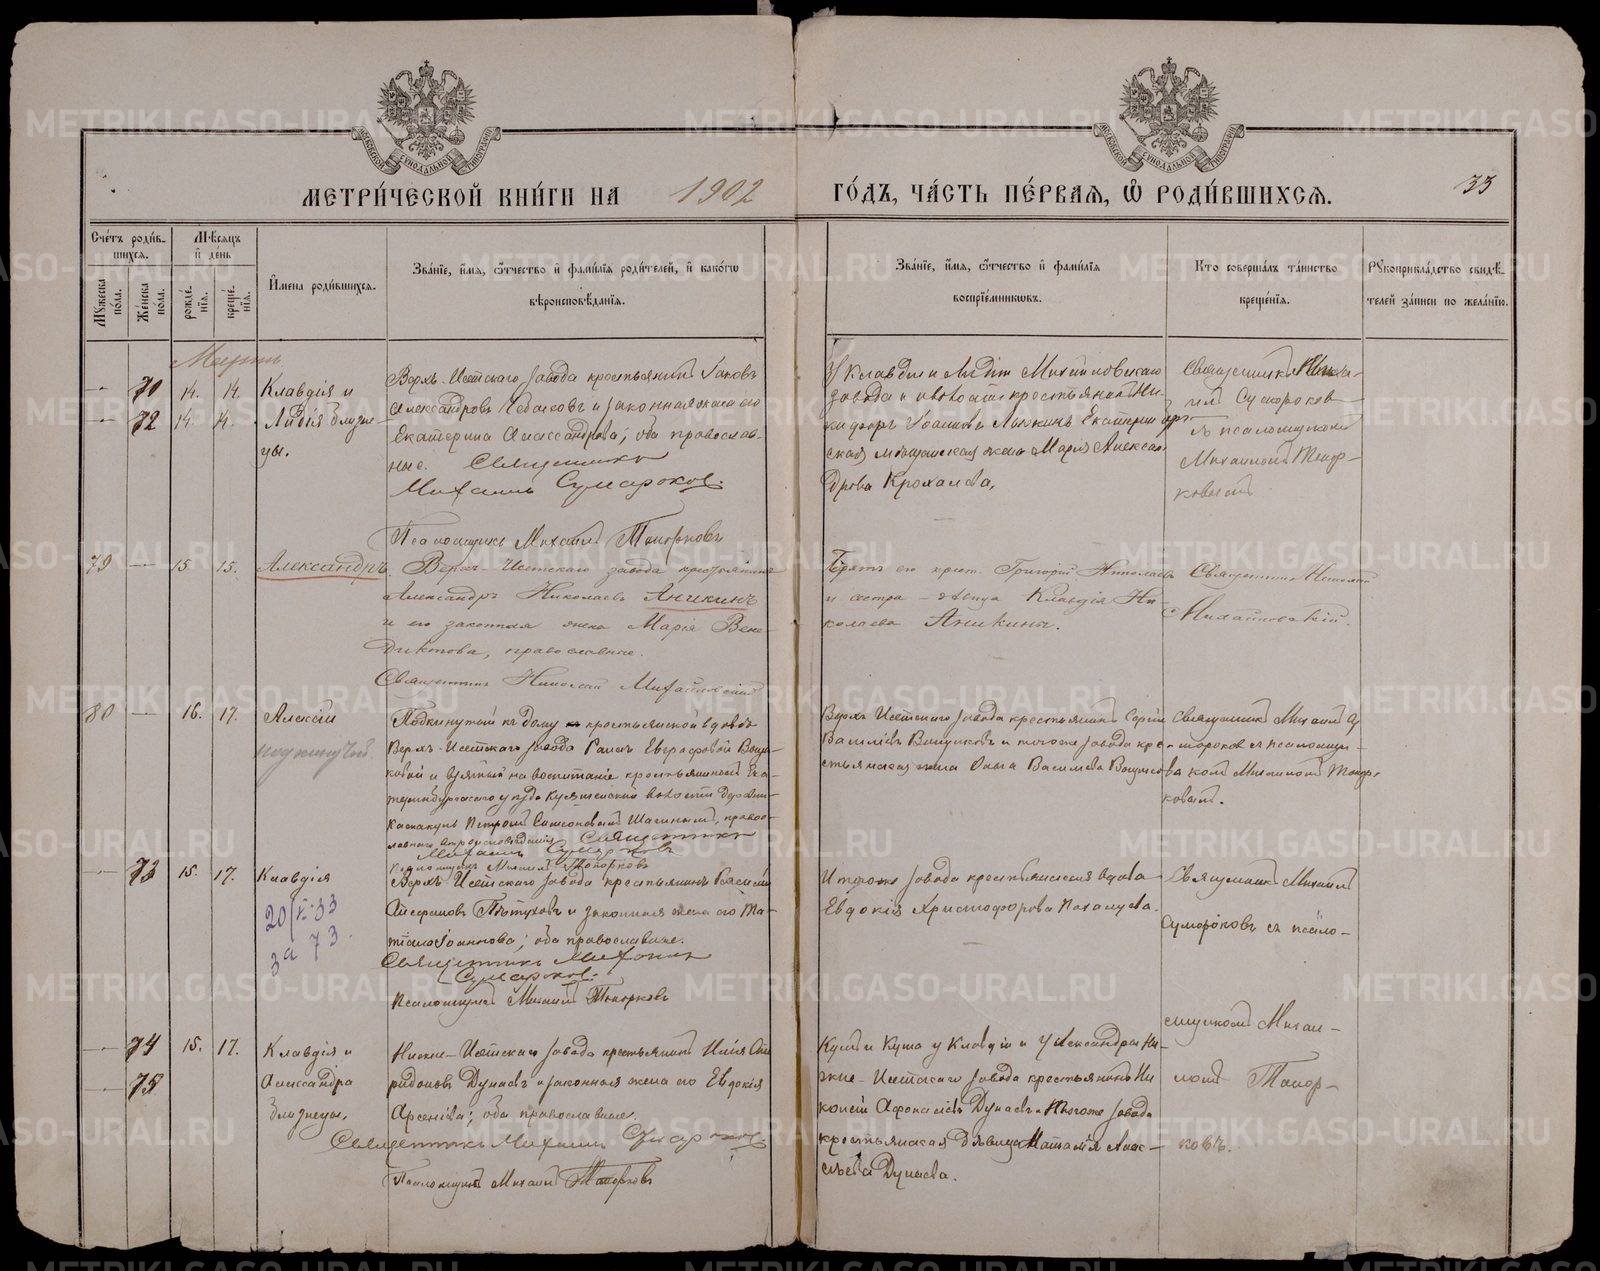 МЕТРИ́ЧЕСКОЙ КНИ́ГИ НА 1902 ГО́ДЪ, ЧА́СТЬ ПЕ́РВАЯ, Ѡ РОДИ́ВШИХСЯ.
33
Сче́тъ роди́в-
шихся.
Мѣсяцъ
и де́нь
Му́жеска по́ла.
Же́нска по́ла.
рожде́нїя.
креще́нїя.
И́мена роди́вшихся.
Зва́нїе, и́мя, ѻ́тчество и фами́лїя роди́телей, и како́гѡ
вѣроисповѣ́данїя.
Зва́нїе, и́мя, ѻ́тчество и фами́лїя
воспрїе́мникѡвъ.
Кто соверша́лъ та́инство
креще́нїя.
Рꙋкоприкла́дство свидѣ́-
телей за́писи по жела́нїю.
Мартъ
71 14. 14. Клавдія и
72 14. 14. Лидія близне-
цы.
Верхъ-Исетскаго завода крестьянинъ Іаковъ
Александровъ и законная жена его
Екатерина Александрова; оба православ-
ные. Священникъ
Михаилъ Сумароковъ.
Псаломщикъ Михаилъ Топорковъ
У Клавдіи и Лидіи Михайловскаго
завода и волости крестьянинъ Ни-
кифоръ Іоанновъ Екатеринбург-
ская мѣщанская жена Марія Алексан-
дрова Крохалева.
Священникъ Миха-
илъ Сумороковъ
съ псаломщикомъ
Михаиломъ Топор-
ковымъ
79 — 15 15. Александръ
Верхъ-Исетскаго завода крестьянинъ
Александръ Николаевъ Аникинъ
и его законная жена Марія Вене-
диктова, православные.
Священникъ Николай Михайловскій
Братъ его крест. Григорій Николаевъ
и сестра — дѣвица Клавдія Ни-
колаева Аникины.
Священникъ Николай
Михайловскій.
80 — 16. 17. Алексѣй
подкинутый
Подкинутый къ дому крестьянской вдовы
Верхъ-Исетскаго завода Раисы Евграфовой
и взятый на воспитаніе крестьяниномъ Ека-
теринбургскаго уѣзда волости деревни
Петромъ Шагинымъ, право-
славнаго вѣроисповѣданія. Священникъ
Михаилъ Сумароковъ
Псаломщикъ Михаилъ Топорковъ
Верхъ Исетскаго завода крестьянинъ Сергій
Василіевъ и тогоже завода кре-
стьянская жена Ольга Василіева
Священникъ Михаилъ Су-
мороковъ съ псаломщи-
комъ Михаиломъ Топор-
ковымъ.
73 15. 17. Клавдія
20/X-33
за 73.
Верхъ-Исетскаго завода крестьянинъ Василій
Пѣтуховъ и законная жена его Та-
тіана Іоаннова; оба православные.
Священникъ Михаилъ
Сумароковъ.
Псаломщикъ Михаилъ Топорковъ
И тогоже завода крестьянская вдова
Евдокія Христофорова
Священникъ Михаилъ
Сумороковъ съ псало-
74 15. 17. Клавдія и
75 Александра
близнецы.
Нижне-Исетскаго завода крестьянинъ Илія Спи-
ридоновъ Дунаевъ и законная жена его Евдокія
Арсеніева; оба православные.
Священникъ Михаилъ Сумароковъ
Псаломщикъ Михаилъ Топорковъ
у Клавдіи и у Александры Ни-
жне-Исетскаго завода крестьянинъ Ни-
колай Дунаевъ и тогоже завода
крестьянская дѣвица Наталія Алек-
сѣева Дунаева.
мщикомъ Михаи-
ломъ Топор-
ковъ.
METRIKI.GASO-URAL.RU